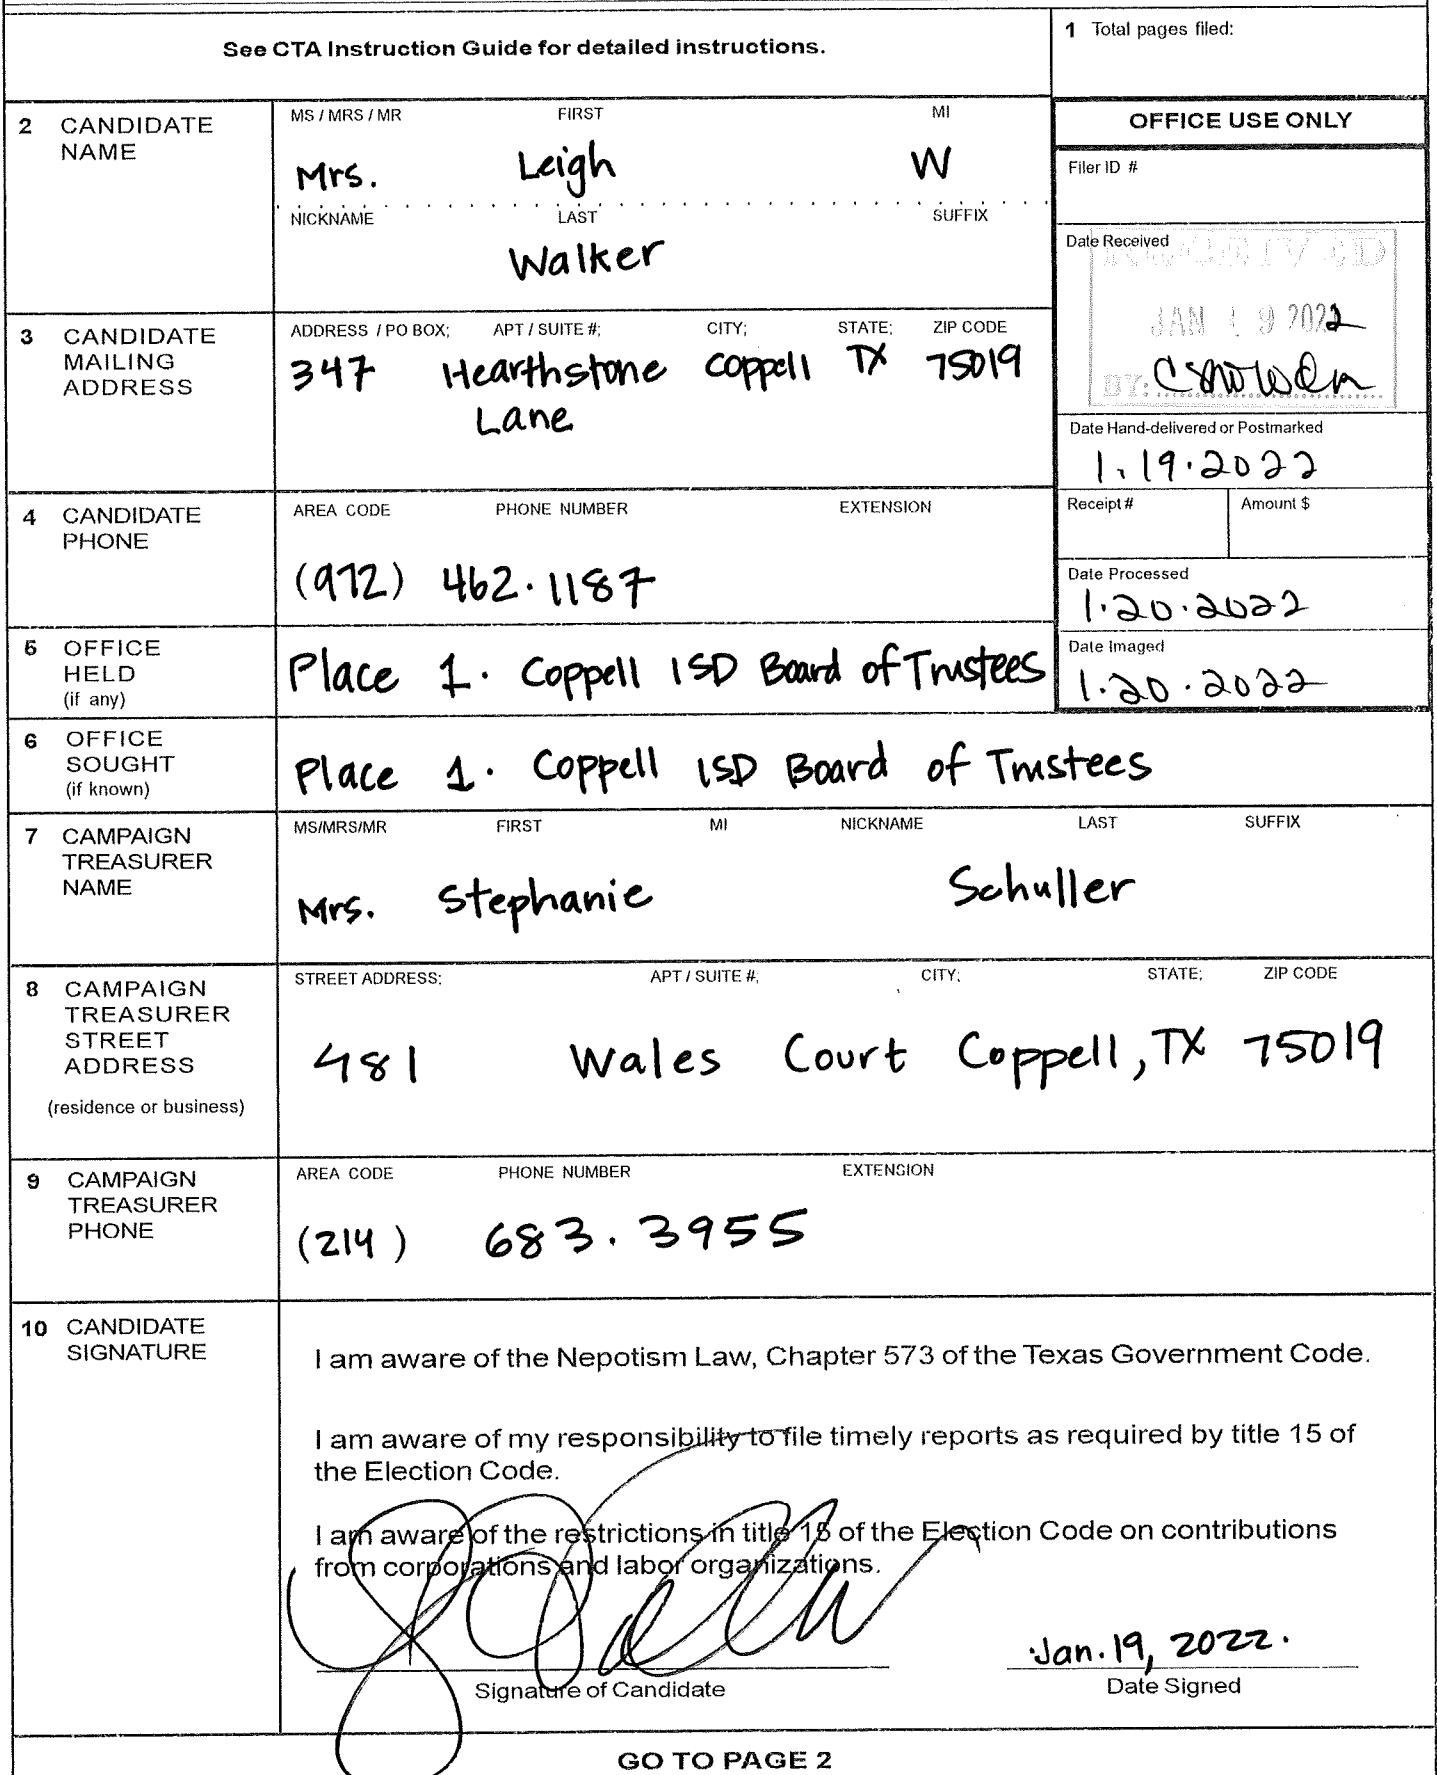 See CTA Instruction Guide for detailed instructions.
1 Total pages filed:
2 CANDIDATE NAME
MS / MRS / MR FIRST MI
Mrs. Leigh W
NICKNAME LAST SUFFIX
Walker
OFFICE USE ONLY
Filer ID #
Date Received
RECEIVED
JAN 19 2022
BY: CSnowden
Date Hand-delivered or Postmarked
1.19.2022
Receipt # Amount $
Date Processed
1.20.2022
Date Imaged
1.20.2022
3 CANDIDATE MAILING ADDRESS
ADDRESS / PO BOX; APT / SUITE #; CITY; STATE; ZIP CODE
347 Hearthstone Coppell TX 75019
Lane
4 CANDIDATE PHONE
AREA CODE PHONE NUMBER EXTENSION
(972) 462.1187
5 OFFICE HELD (if any)
Place 1. Coppell ISD Board of Trustees
6 OFFICE SOUGHT (if known)
Place 1. Coppell ISD Board of Trustees
7 CAMPAIGN TREASURER NAME
MS/MRS/MR FIRST MI NICKNAME LAST SUFFIX
Mrs. Stephanie Schuller
8 CAMPAIGN TREASURER STREET ADDRESS
(residence or business)
STREET ADDRESS; APT / SUITE #; CITY; STATE; ZIP CODE
481 Wales Court Coppell, TX 75019
9 CAMPAIGN TREASURER PHONE
AREA CODE PHONE NUMBER EXTENSION
(214) 683.3955
10 CANDIDATE SIGNATURE
I am aware of the Nepotism Law, Chapter 573 of the Texas Government Code.
I am aware of my responsibility to file timely reports as required by title 15 of
the Election Code.
I am aware of the restrictions in title 15 of the Election Code on contributions
from corporations and labor organizations.
Jan. 19, 2022.
Signature of Candidate Date Signed
GO TO PAGE 2